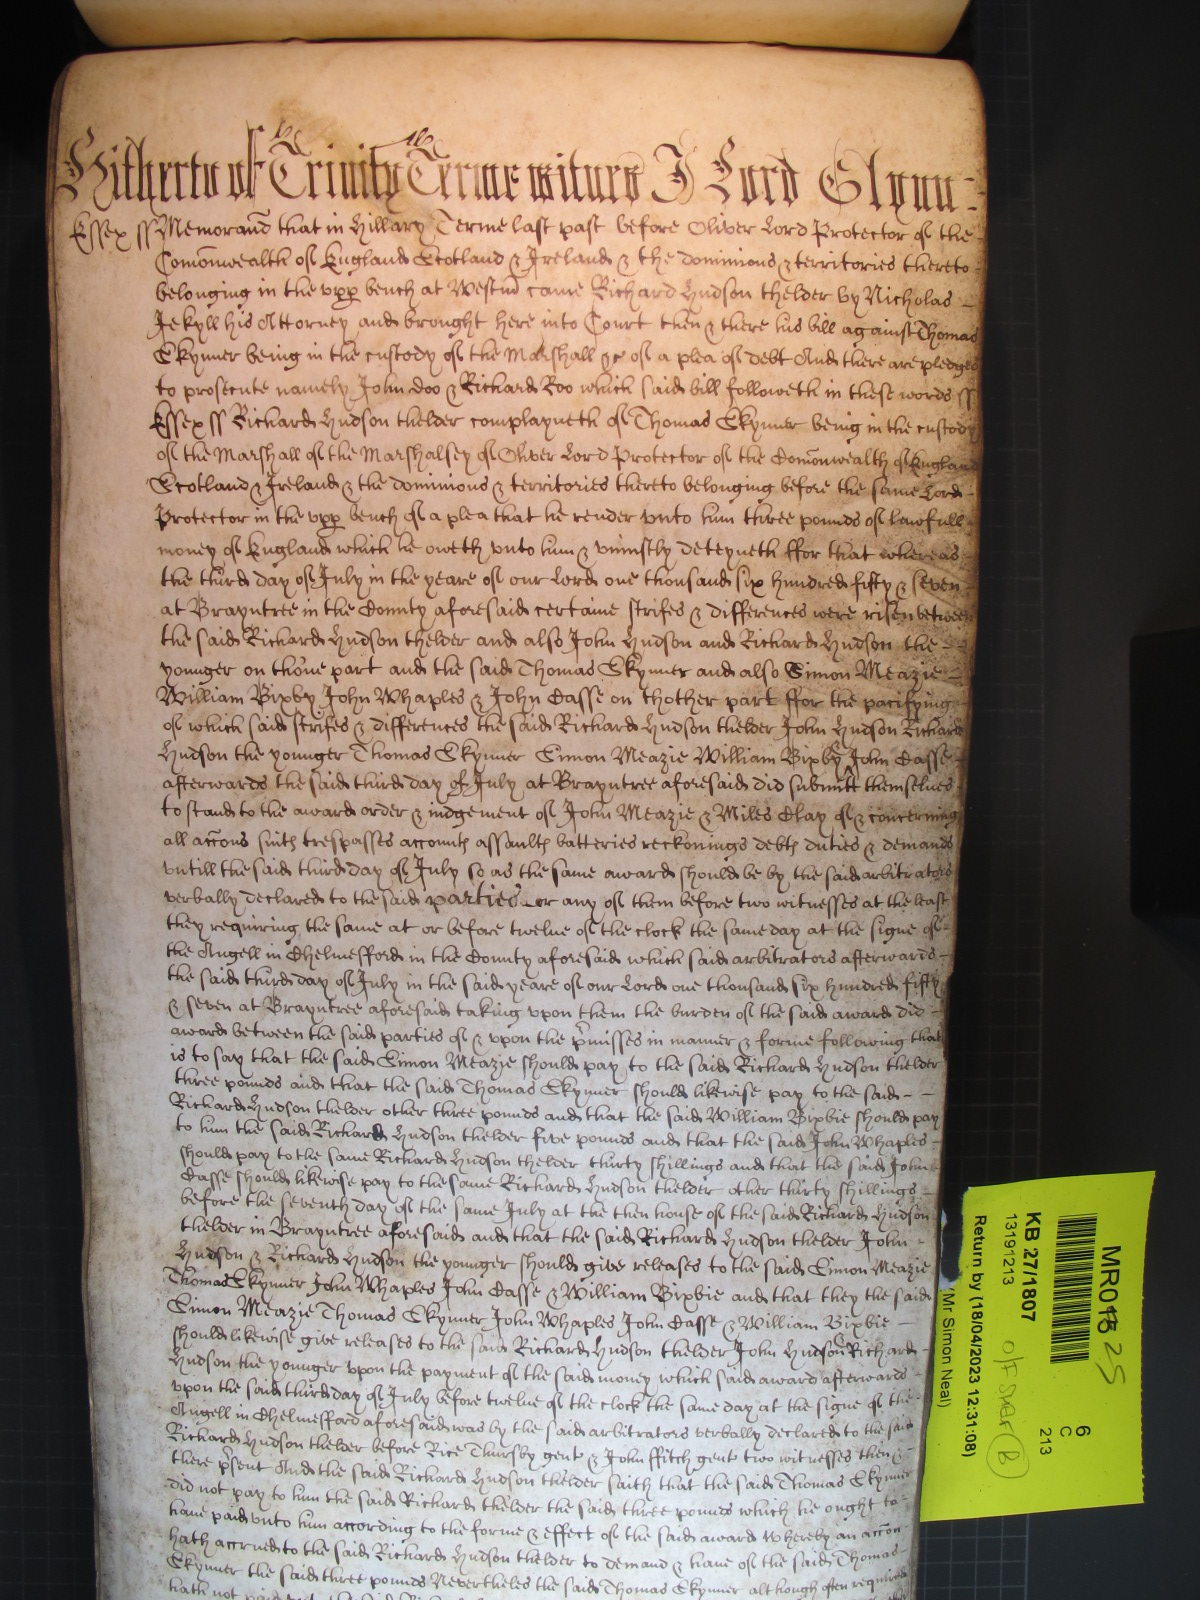 Hitherto of Trinity Terme witnes J Lord Glynn
Essex ss Memorand that in Hillary Terme last past before Oliver Lord Protector of the
Comonwealth of England Scotland & Ireland & the dominions & territories thereto
belonging in the upp bench at Westm came Richard Hudson thelder by Nicholas
Jekyll his Attorney and brought here into Court then & there his bill against Thomas
Skynner being in the custody of the Marshall &c of a plea of debt And there are pledges
to prosecute namely John doo & Richard Roo which said bill followeth in these words ss
Essex ss Richard Hudson thelder complayneth of Thomas Skynner being in the custody
of the Marshall of the Marshalsey of Oliver Lord Protector of the Comonwealth of England
Scotland & Ireland & the dominions & territories thereto belonging before the same Lord
Protector in the upp bench of a plea that he render vnto him three pounds of lawfull
money of England which he oweth vnto him & vniustly deteyneth ffor that whereas
the third day of July in the yeare of our Lord one thousand six hundred fifty & seven
at Brayntree in the County aforesaid certaine strifes & differences were risen between
the said Richard Hudson thelder and also John Hudson and Richard Hudson the
younger on thone part and the said Thomas Skynner and also Simon Meazie
William Bixby John Whaples & John Casse on thother part ffor the pacifying
of which said strifes & differences the said Richard Hudson thelder John Hudson Richard
Hudson the younger Thomas Skynner Simon Meazie William Bixby John Casse
afterwards the said third day of July at Brayntree aforesaid did submitt themselues
to stand to the award order & iudgement of John Meazie & Miles Clay of & concerning
all accons suits trespasses accounts assaults batteries reckonings debts duties & demands
vntill the said third day of July so as the same award should be by the said arbitrators
verbally declared to the said parties or any of them before two witnesses at the least
they requiring the same at or before twelue of the clock the same day at the signe of
the Angell in Chelmesford in the County aforesaid which said arbitrators afterwards
the said third day of July in the said yeare of our Lord one thousand six hundred fifty
& seven at Brayntree aforesaid taking vpon them the burden of the said award did
award between the said parties of & vpon the pmisses in manner & forme following that
is to say that the said Simon Meazie should pay to the said Richard Hudson thelder
three pounds and that the said Thomas Skynner should likewise pay to the said
Richard Hudson thelder other three pounds and that the said William Bixbie should pay
to him the said Richard Hudson thelder five pounds and that the said John Whaples
should pay to the same Richard Hudson thelder thirty shillings and that the said John
Casse should likewise pay to the same Richard Hudson thelder other thirty shillings
before the seventh day of the same July at the then house of the said Richard Hudson
thelder in Brayntree aforesaid and that the said Richard Hudson thelder John
Hudson & Richard Hudson the younger should give releases to the said Simon Meazie
Thomas Skynner John Whaples John Casse & William Bixbie and that they the said
Simon Meazie Thomas Skynner John Whaples John Casse & William Bixbie
should likewise give releases to the said Richard Hudson thelder John Hudson & Richard
Hudson the younger vpon the payment of the said money which said award afterwards
vpon the said third day of July before twelue of the clock the same day at the signe of the
Angell in Chelmesford aforesaid was by the said arbitrators verbally declared to the said
Richard Hudson thelder before Rice Thursby gent & John ffitch gent two witnesses then &
there psent And the said Richard Hudson thelder saith that the said Thomas Skynner
did not pay to him the said Richard thelder the said three pounds which he ought to
haue paid vnto him according to the forme & effect of the said award Whereby an accon
hath accrued to the said Richard Hudson thelder to demand & haue of the said Thomas
Skynner the said three pounds Nevertheles the said Thomas Skynner although often required
hath not paid
MR018 25
6
C
213
KB 27/1807
13191213
Return by (18/04/2023 12:31:08)
(Mr Simon Neal)